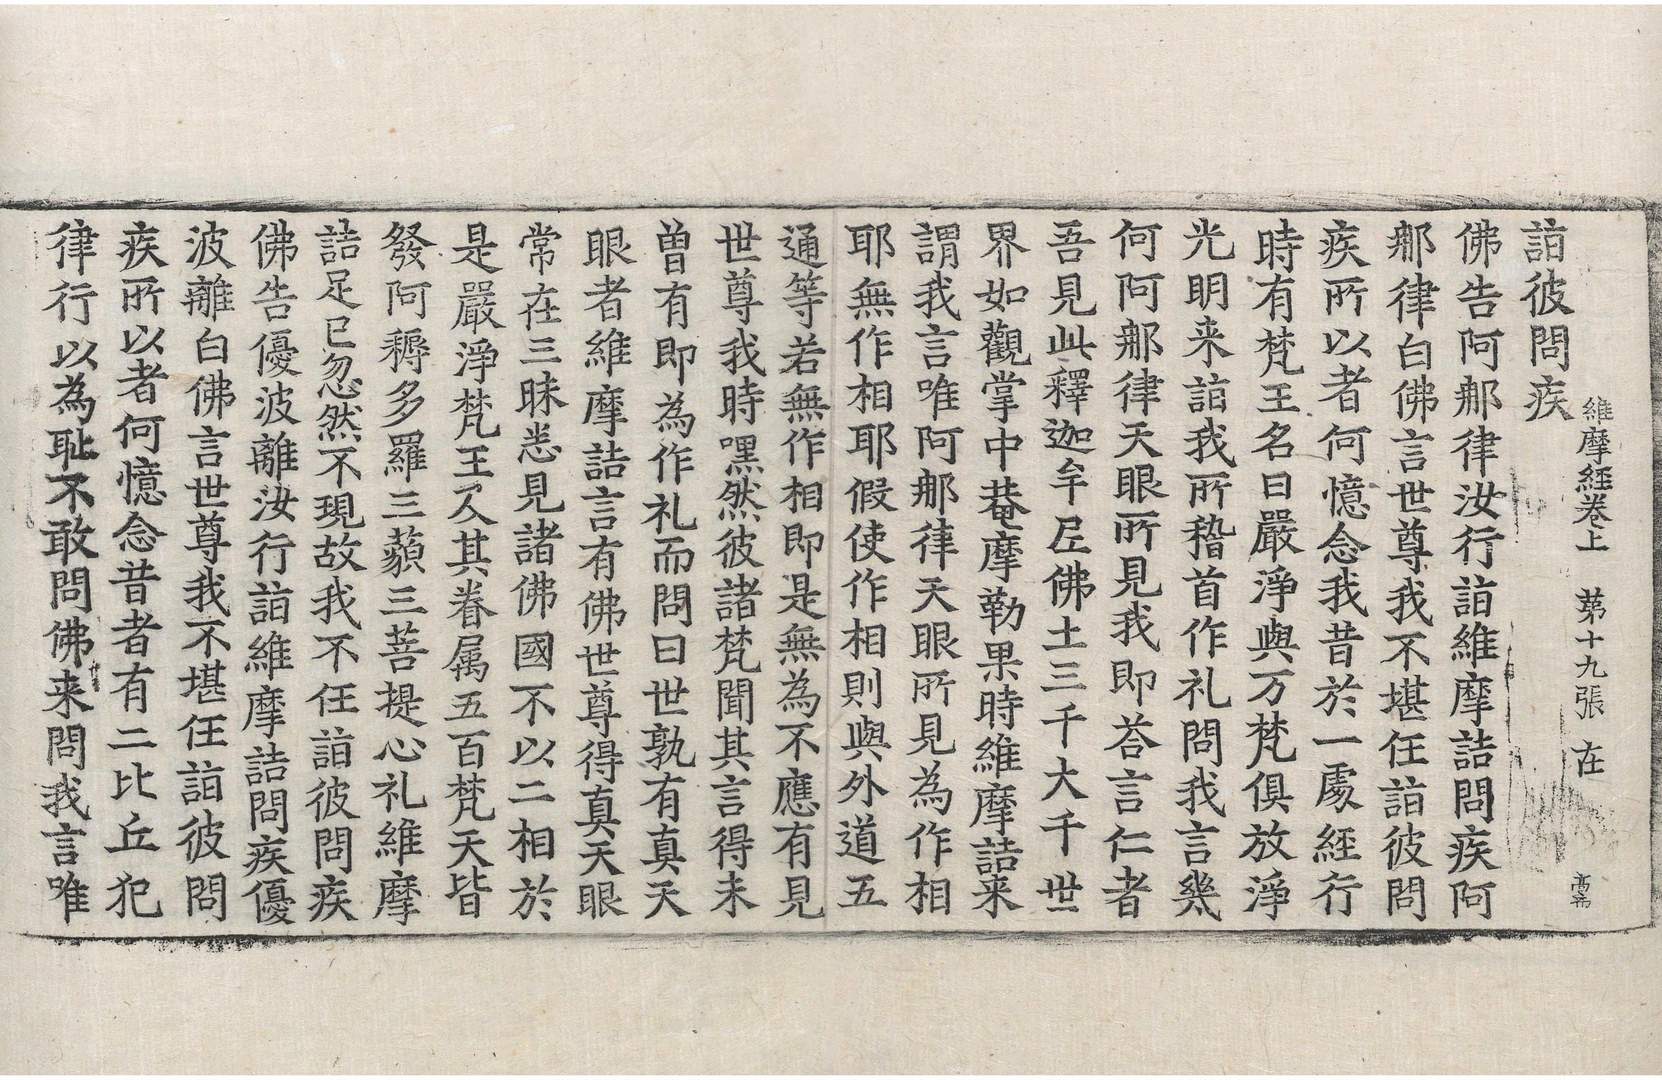 維摩經卷上 第十九張 在
詣彼問疾
佛告阿那律汝行詣維摩詰問疾阿
那律白佛言世尊我不堪任詣彼問
疾所以者何憶念我昔於一處經行
時有梵王名曰嚴淨與万梵俱放淨
光明来詣我所稽首作礼問我言幾
何阿那律天眼所見我即荅言仁者
吾見此釋迦牟尼佛土三千大千世
界如觀掌中菴摩勒果時維摩詰来
謂我言唯阿那律天眼所見為作相
耶無作相耶假使作相則與外道五
通等若無作相即是無為不應有見
世尊我時嘿然彼諸梵聞其言得未
曽有即為作礼而問曰世孰有真天
眼者維摩詰言有佛世尊得真天眼
常在三昧悉見諸佛國不以二相於
是嚴淨梵王及其眷属五百梵天皆
發阿耨多羅三藐三菩提心礼維摩
詰足已忽然不現故我不任詣彼問疾
佛告優波離汝行詣維摩詰問疾優
波離白佛言世尊我不堪任詣彼問
疾所以者何憶念昔者有二比丘犯
律行以為耻不敢問佛来問我言唯